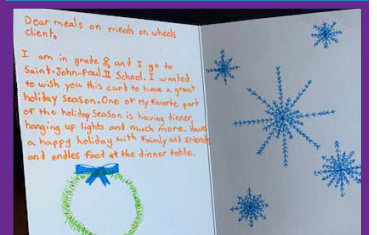 Dear meals on meals on wheels
client,
I am in grade 8 and I go to
Saint-John-Paul II School. I wanted
to wish you this card to have a great
holiday season. One of my favorite part
of the holiday season is having dinner,
hanging up lights and much more. Have
a happy holiday with family and friends
and endles food at the dinner table.